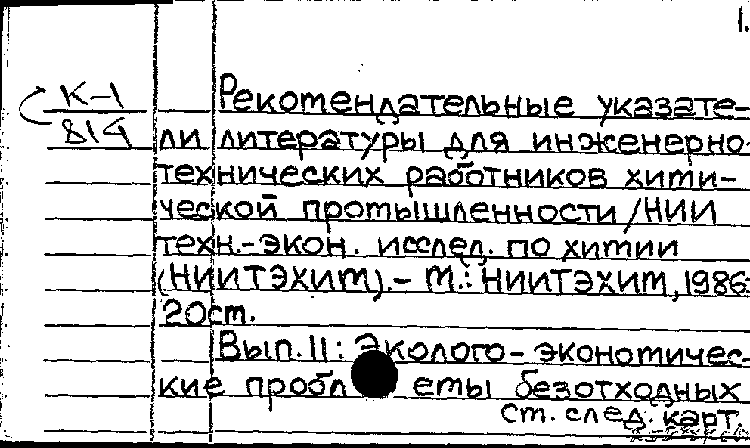 1.
К-1
814
Рекомендательные указате-
ли литературы для инженерно-
технических работников хими-
ческой промышленности / НИИ
техн.-экон. исслед. по химии
(НИИТЭХИМ). - М.: НИИТЭХИМ, 1986-
20см.
Вып. 11: Эколого-экономичес-
кие проблемы безотходных
см. след. карт.